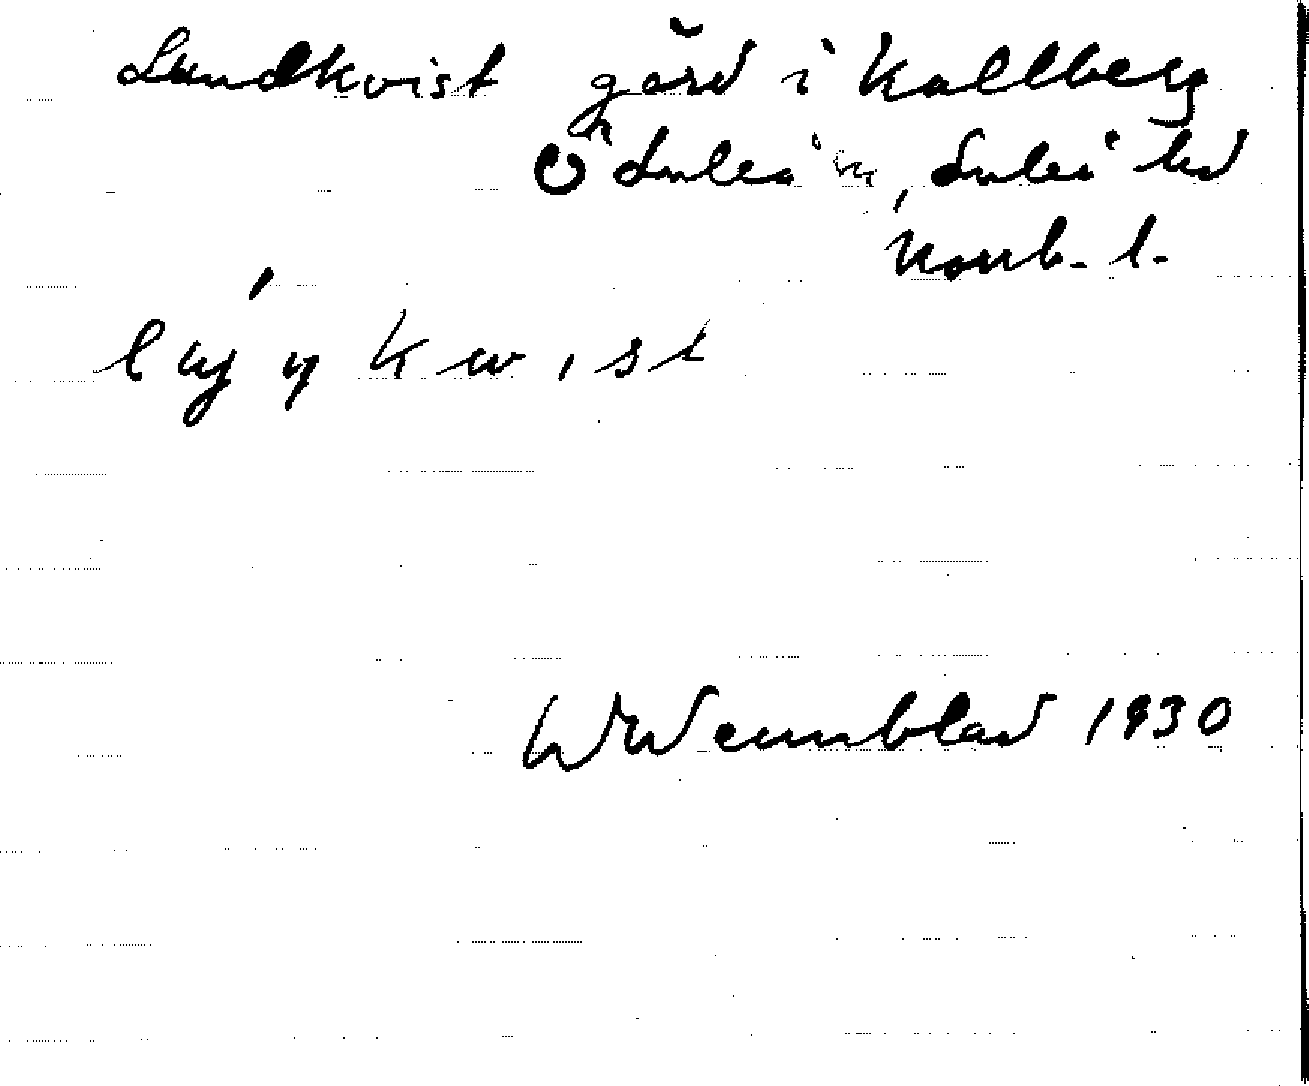 Lundkvist gård i Kallberg
Ö Luleå sn, Luleå hd
Norrb. l.
kwist
W Wennblad 1930